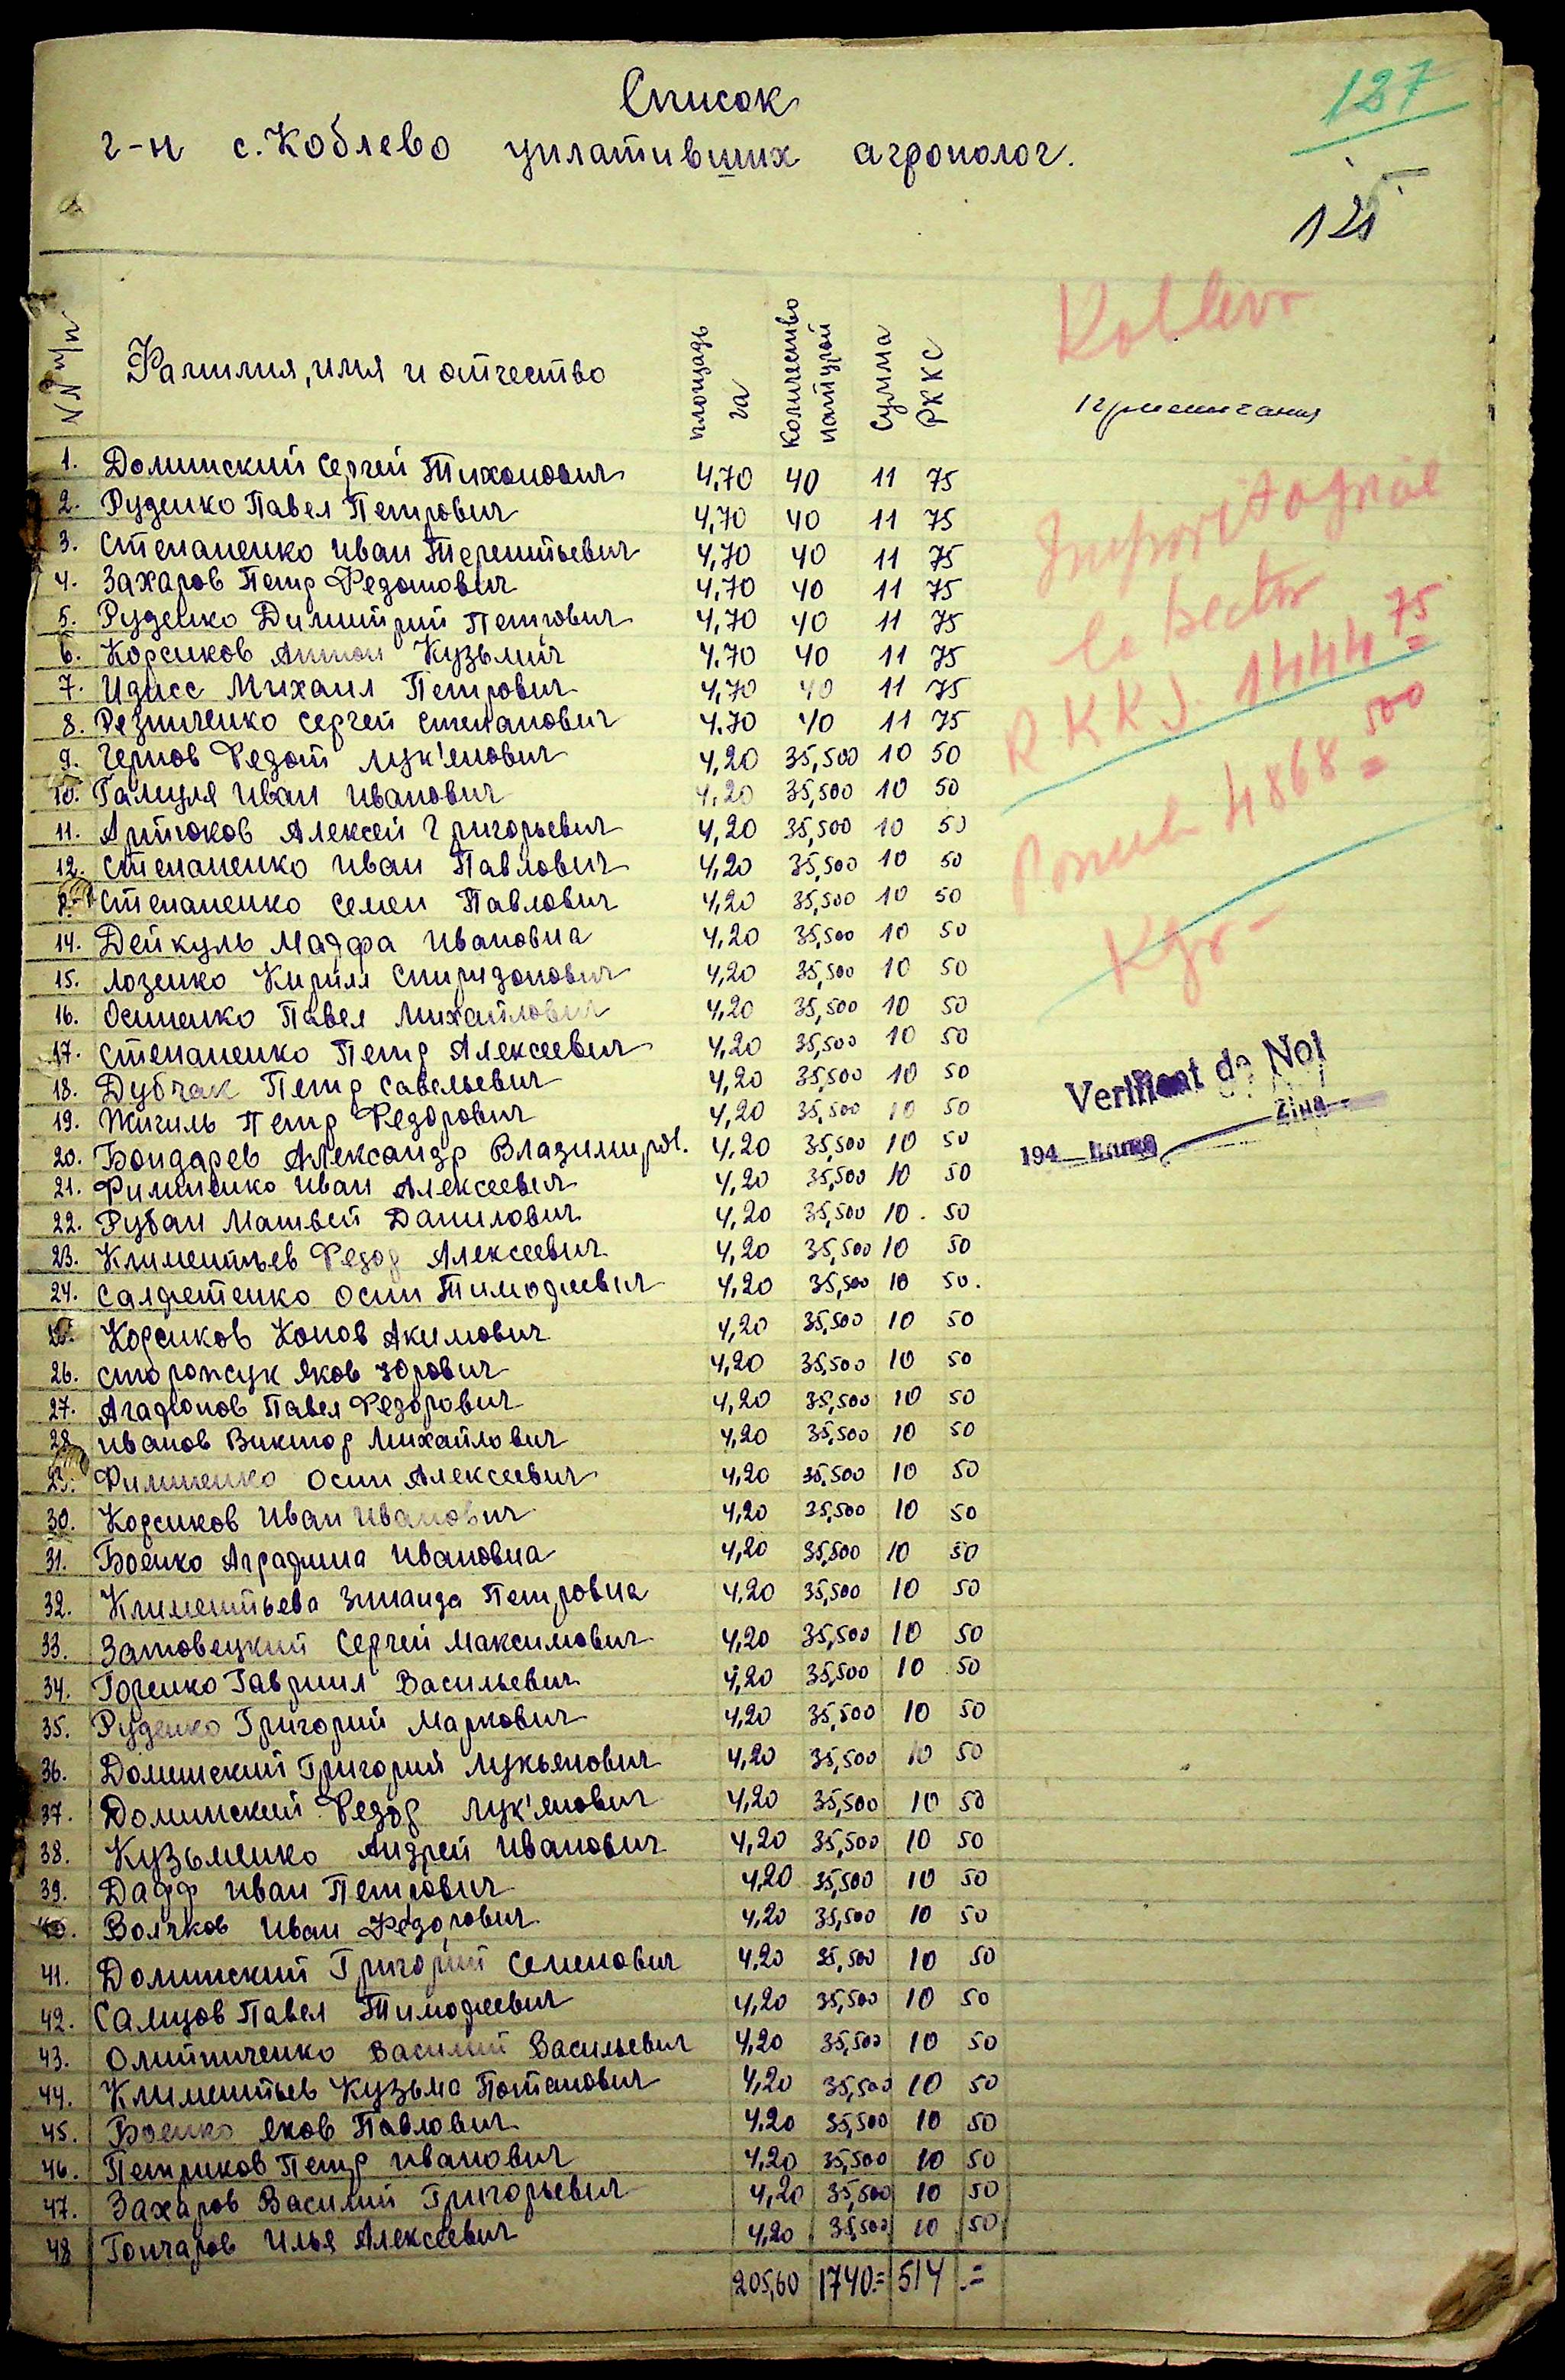 Список
г-н с. Коблево уплативших агрополог.
127
125
Koblevo
NN п/п
Фамилия, имя и отчество
площадь га
Количество натурой
Сумма РККС
Примечания
1. Долинский Сергей Тихонович 4,70 40 11 75
2. Руденко Павел Петрович 4,70 40 11 75
3. Степаненко Иван Терентьевич 4,70 40 11 75
4. Захаров Петр Федотович 4,70 40 11 75
5. Руденко Димитрий Петрович 4,70 40 11 75
6. Корсиков Антон Кузьмич 4.70 40 11 75
7. Идисс Михаил Петрович 4,70 40 11 75
8. Резниченко Сергей Степанович 4.70 40 11 75
9. Чернов Федот Лук'янович 4,20 35,500 10 50
10. Гамуля Иван Иванович 4,20 35,500 10 50
11. Артюков Алексей Григорьевич 4,20 35,500 10 50
12. Степаненко Иван Павлович 4,20 35,500 10 50
Степаненко Семен Павлович 4,20 35,500 10 50
14. Дейкуль Марфа Ивановна 4,20 35,500 10 50
15. Лозенко Кирилл Спиридонович 4,20 35,500 10 50
16. Осипенко Павел Михайлович 4,20 35,500 10 50
17. Степаненко Петр Алексеевич 4,20 35,500 10 50
18. Дубчак Петр Савельевич 4,20 35,500 10 50
19. Жигиль Петр Федорович 4,20 35,500 10 50
20. Бондарев Александр Владимиров. 4,20 35,500 10 50
21. Филипенко Иван Алексеевич 4,20 35,500 10 50
22. Рубан Матвей Данилович 4,20 35,500 10. 50
23. Климентьев Федор Алексеевич 4,20 35,500 10 50
24. Салфетенко Осип Тимофеевич 4,20 35,500 10 50.
25. Корсиков Конов Акимович 4,20 35,500 10 50
26. Сторожук Яков Юрович 4,20 35,500 10 50
27. Агафонов Павел Федорович 4,20 35,500 10 50
28. Иванов Виктор Михайлович 4,20 35,500 10 50
29. Филипенко Осип Алексеевич 4,20 35,500 10 50
30. Корсиков Иван Иванович 4,20 35,500 10 50
31. Боенко Аграфина Ивановна 4,20 35,500 10 50
32. Климентьева Зинаида Петровна 4,20 35,500 10 50
33. Затовецкий Сергей Максимович 4,20 35,500 10 50
34. Горенко Гавриил Васильевич 4,20 35,500 10 50
35. Руденко Григорий Маркович 4,20 35,500 10 50
36. Долинский Григорий Лукьянович 4,20 35,500 10 50
37. Долинский Федор Лук'янович 4,20 35,500 10 50
38. Кузьменко Андрей Иванович 4,20 35,500 10 50
39. Дафф Иван Петрович 4,20 35,500 10 50
40. Волчков Иван Федорович 4,20 35,500 10 50
41. Долинский Григорий Семенович 4,20 35,500 10 50
42. Самцов Павел Тимофеевич 4,20 35,500 10 50
43. Олийниченко Василий Васильевич 4,20 35,500 10 50
44. Климентьев Кузьма Потапович 4,20 35,500 10 50
45. Боенко Яков Павлович 4.20 35,500 10 50
46. Петриков Петр Иванович 4,20 35,500 10 50
47. Захаров Василий Григорьевич 4,20 35,500 10 50
48 Гончаров Илья Алексеевич 4,20 35,500 10 50
205,60 1740.= 514.=
Imporit agricol
la Sector
RKKS. 1444 75 =
4868 500 =
Kgr-
Verificat de Noi
194 luna ziua